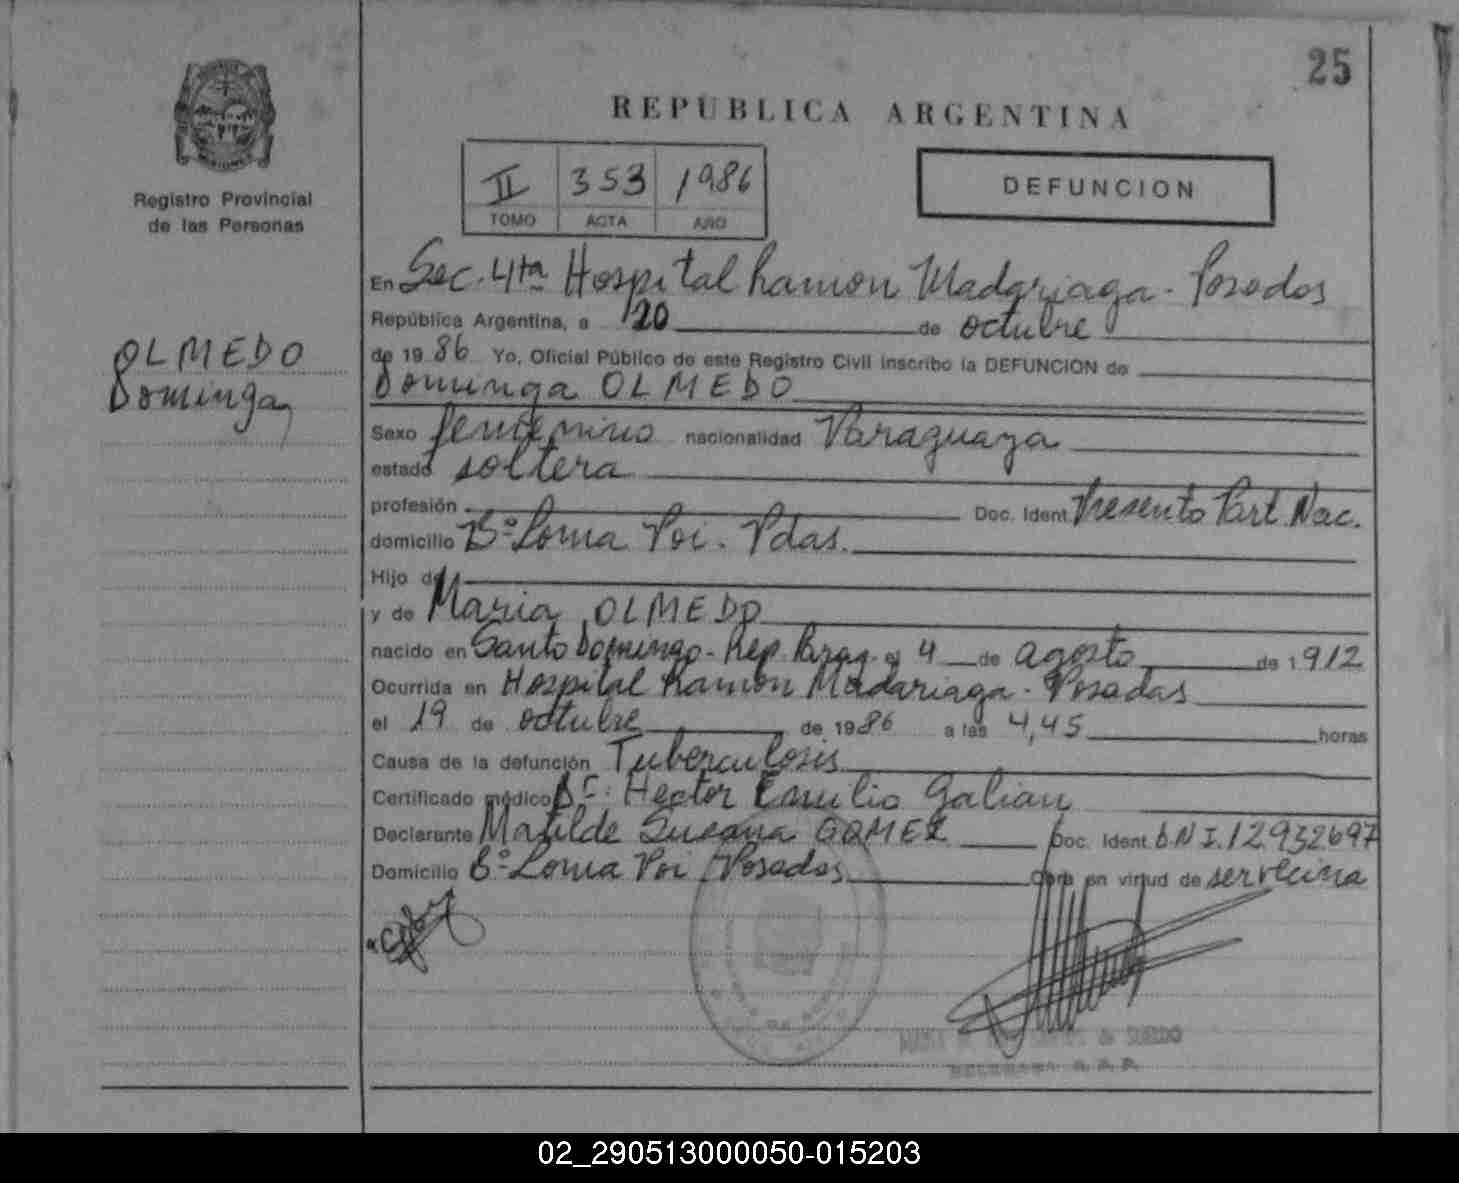 25
REPUBLICA ARGENTINA
II 353 1986
TOMO ACTA AÑO
DEFUNCION
Registro Provincial
de las Personas
OLMEDO
Dominga
En Sec. 4ta Hospital Ramon Madariaga - Posadas
República Argentina, a 20 de octubre
de 1986 Yo, Oficial Público de este Registro Civil inscribo la DEFUNCION de
Dominga OLMEDO
Sexo femenino nacionalidad Paraguaya
estado soltera
profesión Doc. Ident. Presento Part. Nac.
domicilio Bº Loma Poi. Pdas.
Hijo de
y de Maria OLMEDO
nacido en Santo Domingo - Rep. Parag. el 4 de agosto de 1912
Ocurrida en Hospital Ramon Madariaga - Posadas
el 19 de octubre de 1986 a las 4,45 horas
Causa de la defunción Tuberculosis
Certificado médico Dr. Hector Emilio Galian
Declarante Matilde Susana GOMEZ Doc. Ident. D.N.I. 12.932697
Domicilio Bº Loma Poi Posadas Obra en virtud de ser vecina
DELEGADA R.P.P.
02_290513000050-015203